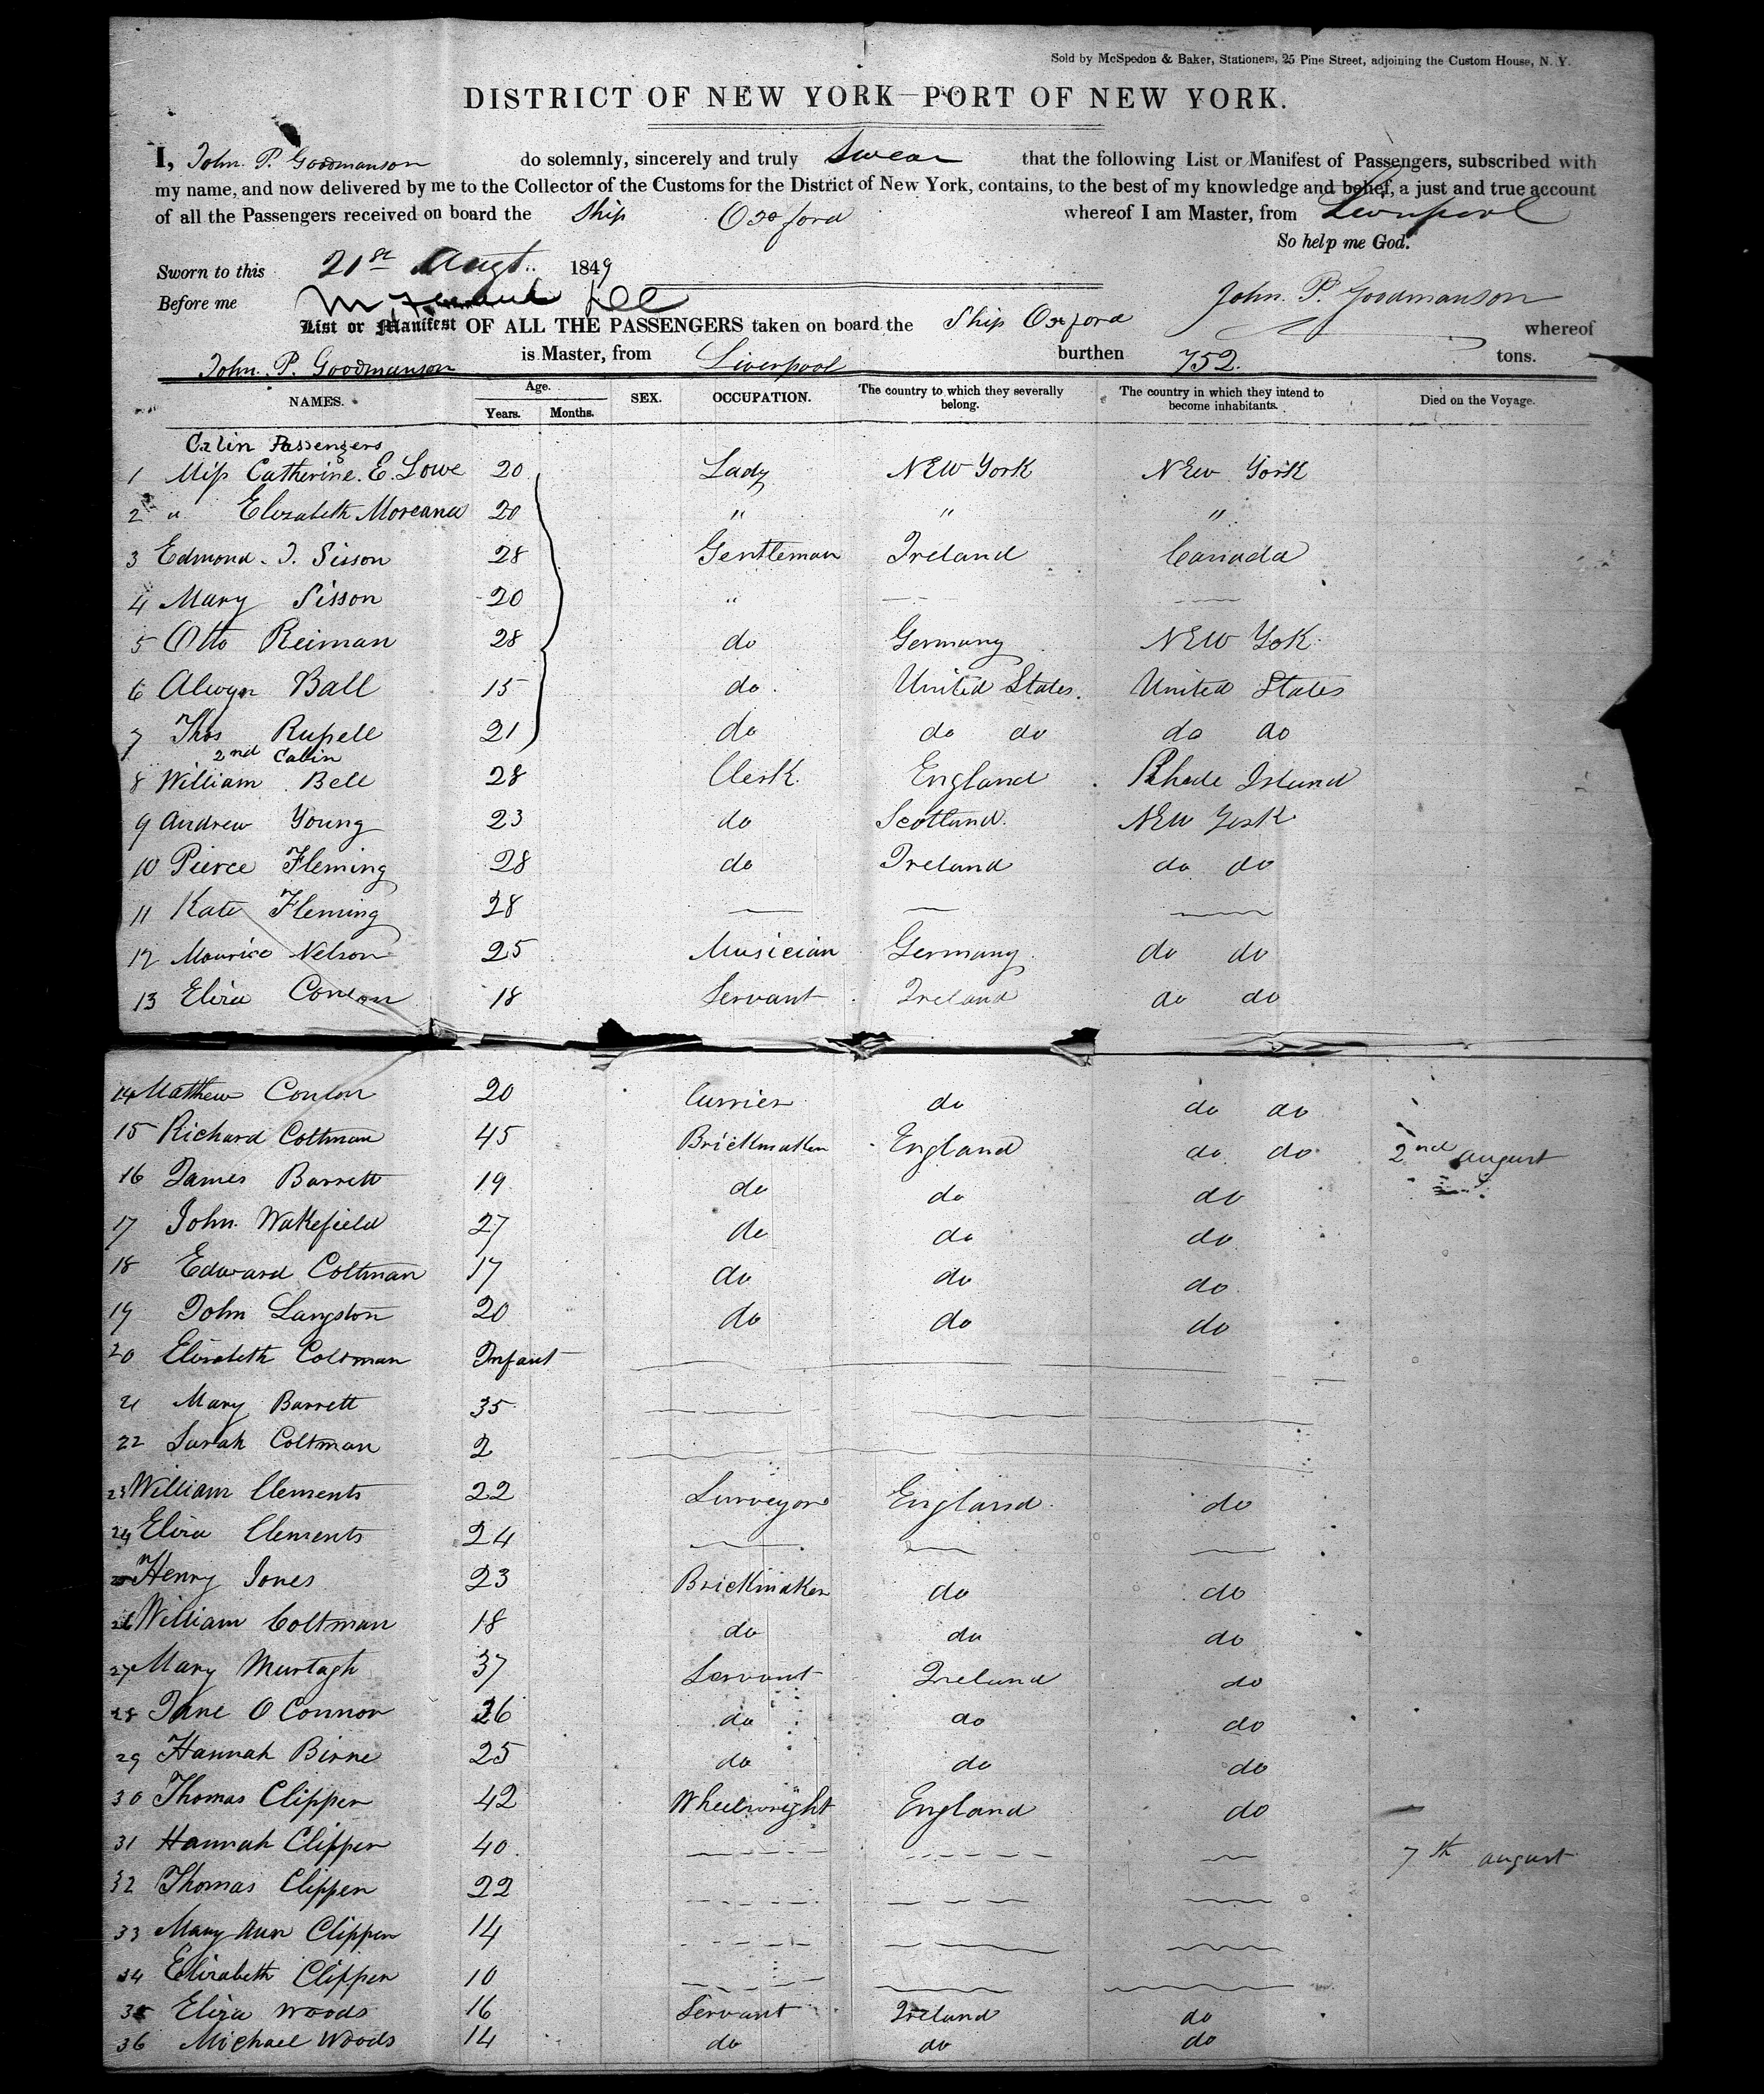 Sold by McSpedon & Baker, Stationers, 25 Pine Street, adjoining the Custom House, N. Y.
DISTRICT OF NEW YORK—PORT OF NEW YORK.
I, John. P. Goodmanson do solemnly, sincerely and truly Swear that the following List or Manifest of Passengers, subscribed with
my name, and now delivered by me to the Collector of the Customs for the District of New York, contains, to the best of my knowledge and belief, a just and true account
of all the Passengers received on board the Ship Oxford whereof I am Master, from Liverpool
So help me God.
Sworn to this 21st Augt. 1849
Before me
John. P. Goodmanson
List or Manifest OF ALL THE PASSENGERS taken on board the Ship Oxford whereof
John. P. Goodmanson is Master, from Liverpool burthen 752. tons.
NAMES. Age. Years. Months. SEX. OCCUPATION. The country to which they severally belong. The country in which they intend to become inhabitants. Died on the Voyage.
Cabin Passengers
1 Miss Catherine. E. Lowe 20 Lady New York New York
2 " Elizabeth 20 " " "
3 Edmond. J. Sisson 28 Gentleman Ireland Canada
4 Mary Sisson 20 " — —
5 Otto Reiman 28 do Germany New Yok
6 Alwyn Ball 15 do. United States. United States
7 Thos Russell 21 do do do do do
2nd Cabin
8 William Bell 28 Clerk England Rhode Island
9 Andrew Young 23 do Scotland. New York
10 Pierce Fleming 28 do Ireland do do
11 Kate Fleming 28 — — —
12 Maurice Nelson 25 Musician Germany do do
13 Eliza Conlon 18 Servant Ireland do do
14 Matthew Conlon 20 Currier do do do
15 Richard Coltman 45 Brickmaker England do do 2nd August
16 James Barrett 19 do do do
17 John Wakefield 27 do do do
18 Edward Coltman 17 do do do.
19 John Langston 20 do do do
20 Elizabeth Coltman Infant —
21 Mary Barrett 35 — — —
22 Sarah Coltman 2 — —
23 William Clements 22 Surveyor England. do
24 Eliza Clements 24 — — —
25 Henry Jones 23 Brickmaker do do
26 William Coltman 18 do do do
27 Mary Murtagh 37 Servant Ireland do
28 Jane O Connor 26 do do do
29 Hannah Birne 25 do do do
30 Thomas Clipper 42 Wheelwright England do
31 Hannah Clipper 40. — — — 7th august
32 Thomas Clipper 22 — — —
33 Mary Ann Clipper 14 — — —
34 Elizabeth Clipper 10 — — —
35 Eliza Woods 16 Servant Ireland do
36 Michael Woods 14 do do do